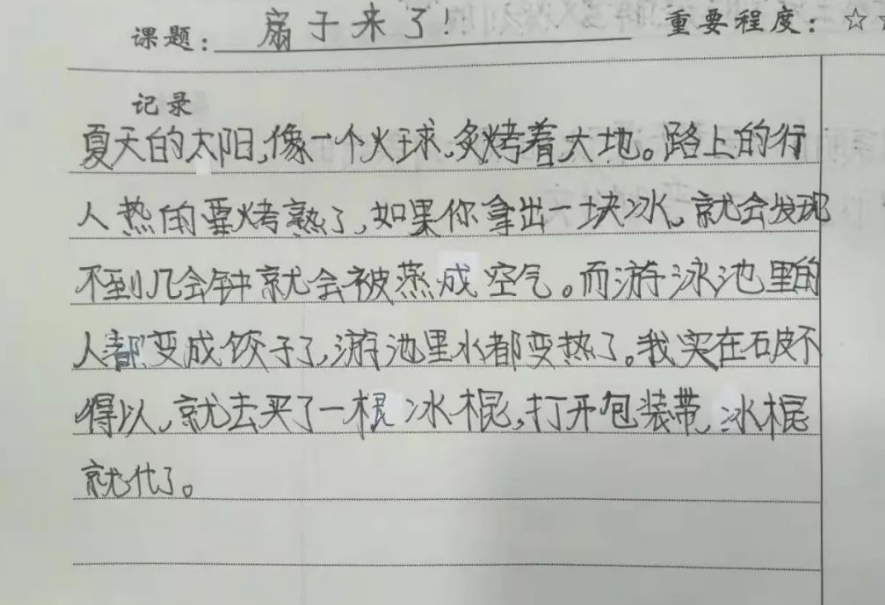 课题：扇子来了！ 重要程度：☆
记录
夏天的太阳，像一个火球，炙烤着大地。路上的行
人热的要烤熟了，如果你拿出一块冰，就会发现
不到几会钟就会被蒸成空气。而游泳池里的
人都变成饺子了，游池里水都变热了。我实在破不
得以，就去买了一棍冰棍，打开包装带，冰棍
就化了。